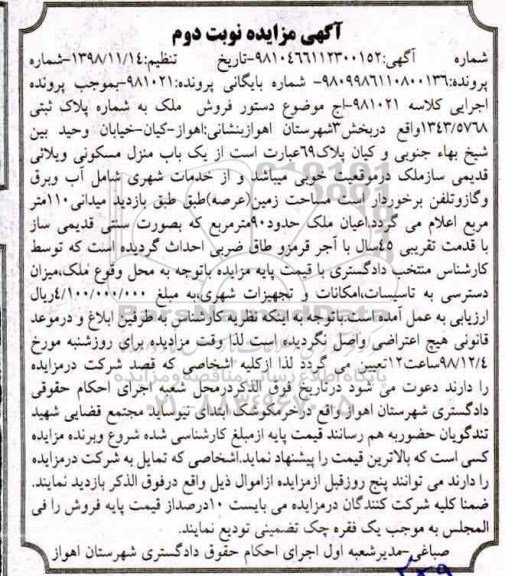 آگهی مزایده نوبت دوم
شماره آگهی:۹۸۱۰۴۶۶۱۱۲۳۰۰۱۵۲-تاریخ تنظیم:۱۳۹۸/۱۱/۱۴-شماره
پرونده:۹۸۰۹۹۸۶۱۱۰۸۰۰۱۳۶- شماره بایگانی پرونده:۹۸۱۰۲۱-بموجب پرونده
اجرایی کلاسه ۹۸۱۰۲۱-اج موضوع دستور فروش ملک به شماره پلاک ثبتی
۱۳۴۳/۵۷۶۸واقع دربخش۳شهرستان اهوازبنشانی:اهواز-کیان-خیابان وحید بین
شیخ بهاء جنوبی و کیان پلاک۶۹عبارت است از یک باب منزل مسکونی ویلائی
قدیمی سازملک درموقعیت خوبی میباشد و از خدمات شهری شامل آب وبرق
وگازوتلفن برخوردار است مساحت زمین(عرصه)طبق طبق بازدید میدانی۱۱۰متر
مربع اعلام می گردد.اعیان ملک حدود۹۰مترمربع که بصورت سنتی قدیمی ساز
با قدمت تقریبی ۴۵سال با آجر قرمزو طاق ضربی احداث گردیده است که توسط
کارشناس منتخب دادگستری با قیمت پایه مزایده باتوجه به محل وقوع ملک،میزان
دسترسی به تاسیسات،امکانات و تجهیزات شهری،به مبلغ ۴/۱۰۰/۰۰۰/۰۰۰ریال
ارزیابی به عمل آمده است.باتوجه به اینکه نظریه کارشناس به طرفین ابلاغ و درموعد
قانونی هیچ اعتراضی واصل نگردیده است لذا وقت مزادیده برای روزشنبه مورخ
۹۸/۱۲/۴ساعت۱۲تعیین می گردد لذا ازکلیه اشخاصی که قصد شرکت درمزایده
را دارند دعوت می شود درتاریخ فوق الذکردرمحل شعبه اجرای احکام حقوقی
دادگستری شهرستان اهواز واقع درخرمکوشک ابتدای نیوساید مجتمع قضایی شهید
تندگویان حضوربه هم رسانند قیمت پایه ازمبلغ کارشناسی شده شروع وبرنده مزایده
کسی است که بالاترین قیمت را پیشنهاد نماید.اشخاصی که تمایل به شرکت درمزایده
را دارند می توانند پنج روزقبل ازمزایده ازاموال ذیل واقع درفوق الذکر بازدید نمایند.
ضمنا کلیه شرکت کنندگان درمزایده می بایست ۱۰درصداز قیمت پایه فروش را فی
المجلس به موجب یک فقره چک تضمینی تودیع نمایند.
صباغی-مدیرشعبه اول اجرای احکام حقوق دادگستری شهرستان اهواز